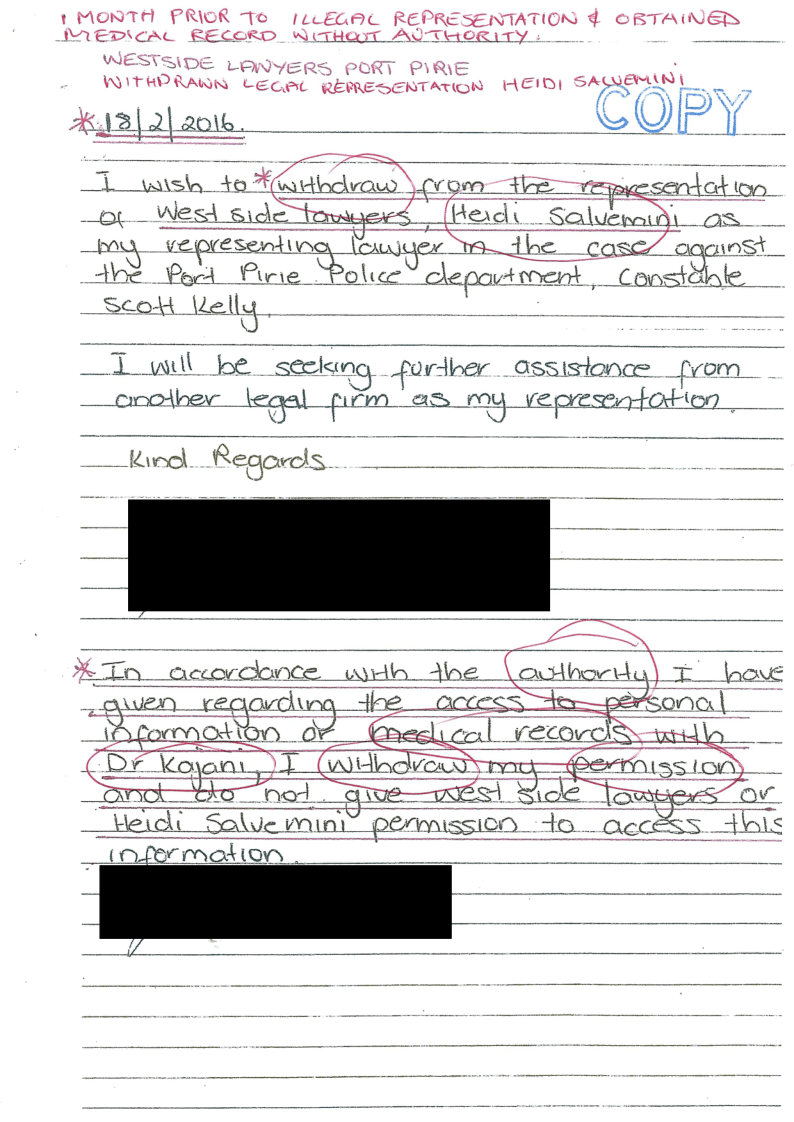 1 MONTH PRIOR TO ILLEGAL REPRESENTATION & OBTAINED
MEDICAL RECORD WITHOUT AUTHORITY.
WESTSIDE LAWYERS PORT PIRIE
WITHDRAWN LEGAL REPRESENTATION HEIDI SALVEMINI
COPY
* 18/2/2016.
I wish to * withdraw from the representation
of West side lawyers, Heidi Salvemini as
my representing lawyer in the case against
the Port Pirie Police department, Constable
Scott Kelly.
I will be seeking further assistance from
another legal firm as my representation.
Kind Regards
* In accordance with the authority I have
given regarding the access to personal
information or medical records with
Dr Kajani, I withdraw my permission
and do not give west side lawyers or
Heidi Salvemini permission to access this
information.